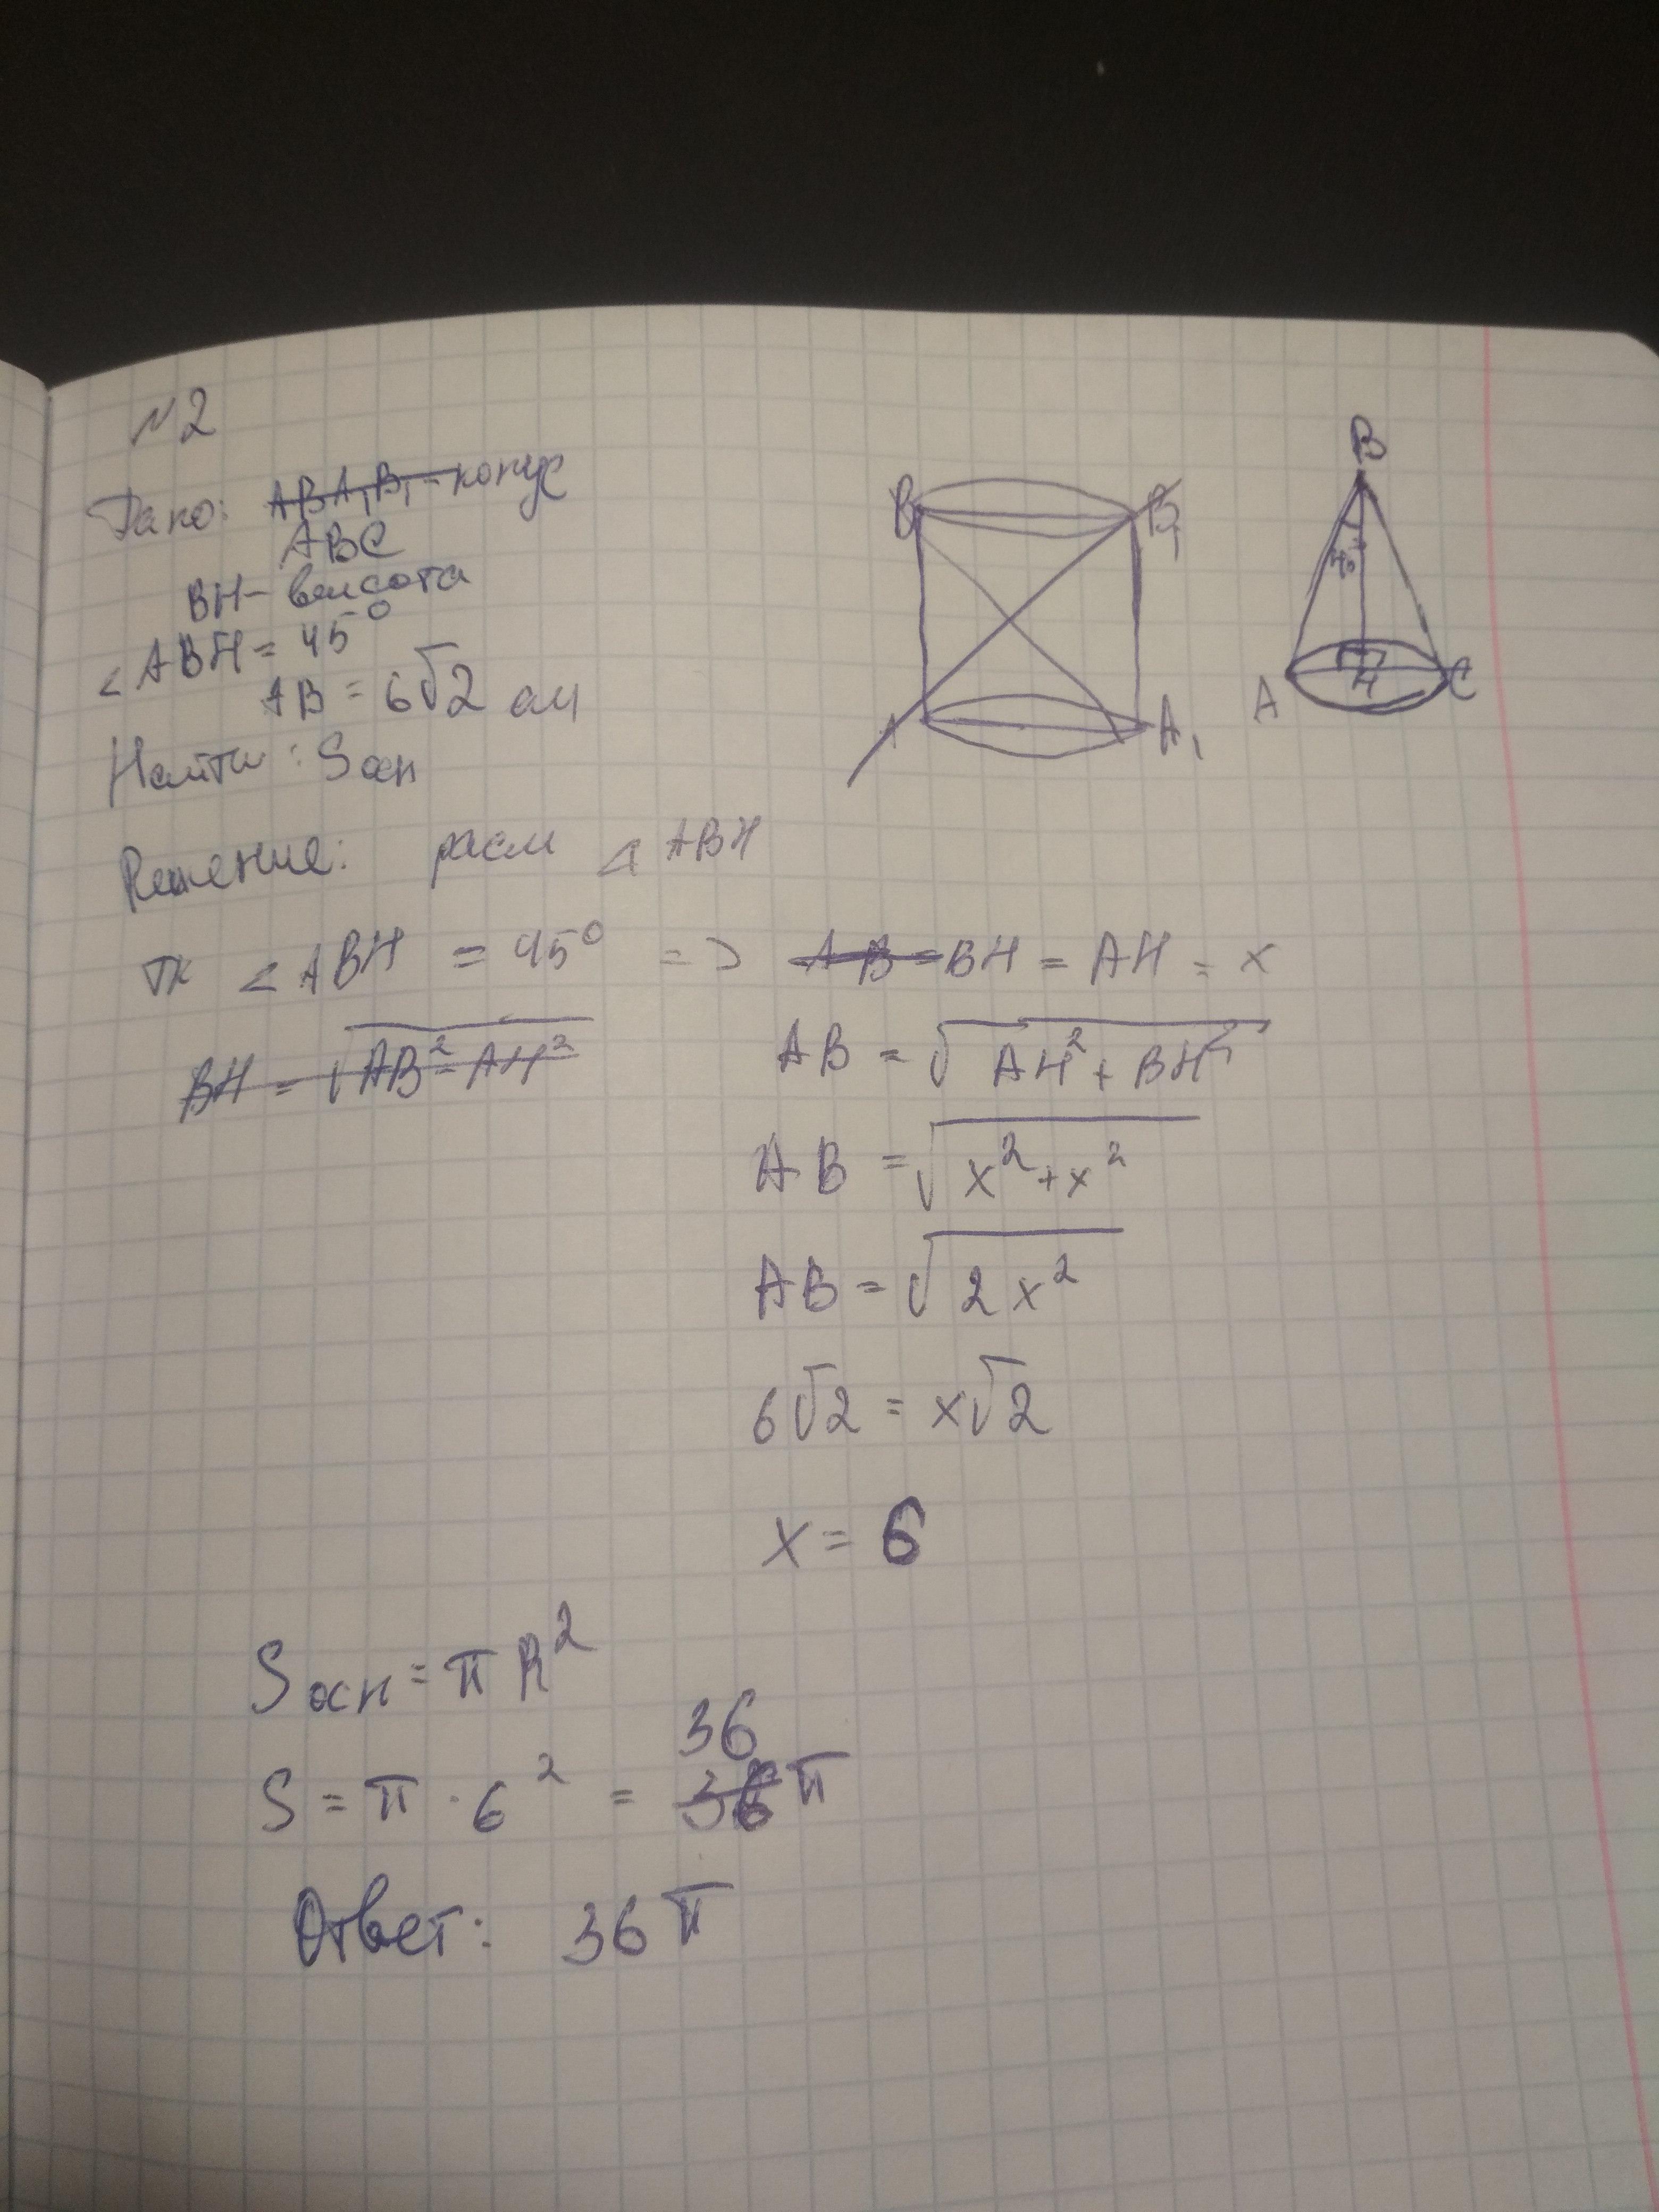 №2
Дано: ABA₁B₁ - конус
ABC
BH - высота
∠ABH = 45°
AB = 6√2 см
Найти: Sосн
B
B₁
A
A₁
B
45°
A
H
C
Решение: расм △ABH
тк ∠ABH = 45° => AB = BH = AH = x
BH = √AB² - AH²
AB = √AH² + BH²
AB = √x² + x²
AB = √2x²
6√2 = x√2
x = 6
Sосн = πR²
36
S = π · 6² = 36π
Ответ: 36π